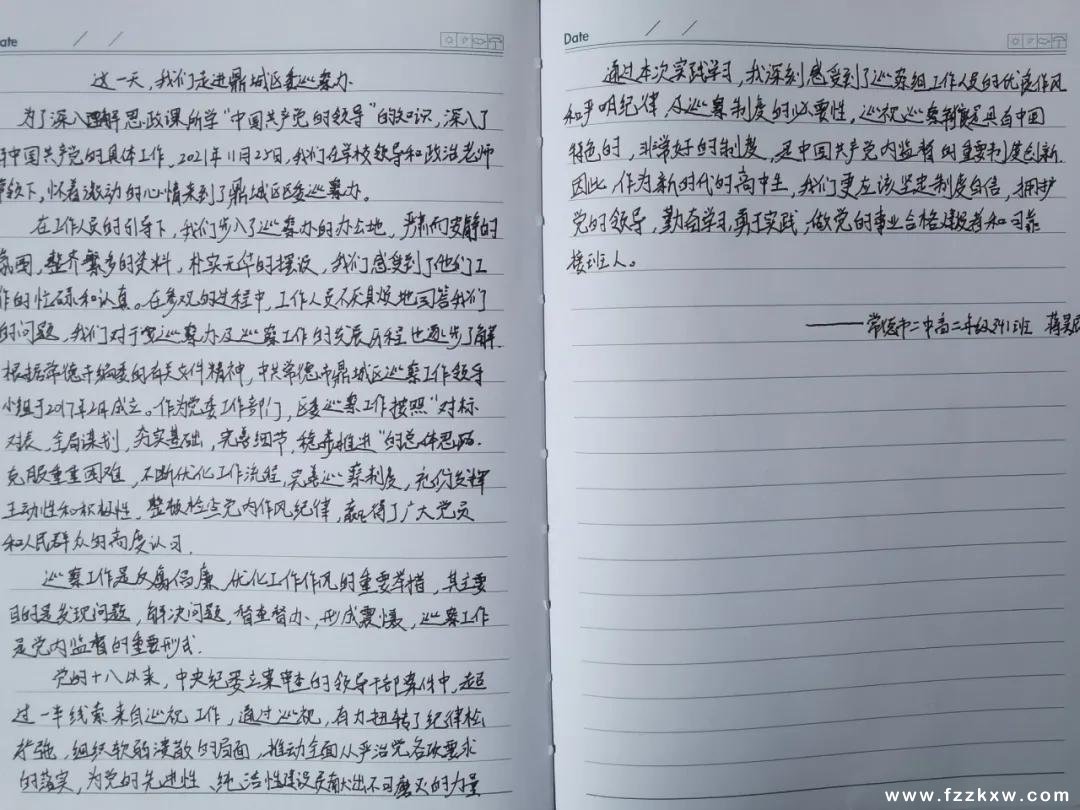 ate / /
这一天，我们走进鼎城区委巡察办
为了深入理解思政课所学“中国共产党的领导”的知识，深入了
中国共产党的具体工作，2021年11月25日，我们在学校领导和政治老师
下，怀着激动的心情来到了鼎城区区委巡察办。
在工作人员的引导下，我们步入了巡察办的办公地，严肃而安静的
氛围，整齐繁多的资料，朴实无华的摆设，我们感受到了他们工
作的忙碌和认真。在参观的过程中，工作人员不厌其烦地回答我们
的问题，我们对于巡察办及巡察工作的发展历程也逐步了解.
根据常德市编委的有关文件精神，中共常德市鼎城区巡察工作领导
小组于2017年2月成立。作为党委工作部门，区委巡察工作按照“对标
对表，全局谋划，夯实基础，完善细节，稳步推进”的总体思路.
克服重重困难，不断优化工作流程，完善巡察制度，充分发挥
主动性和积极性，整顿检查党内作风纪律，赢得了广大党员
和人民群众的高度认可.
巡察工作是反腐倡廉，优化工作作风的重要举措，其主要
目的是发现问题，解决问题，督查督办，形成震慑，巡察工作
是党内监督的重要形式.
党的十八以来，中央纪委立案审查的领导干部案件中，超
过一半线索来自巡视工作，通过巡视，有力扭转了纪律松
弛，组织软弱涣散的局面，推动全面从严治党各项要求
的落实，为党的先进性、纯洁性建设贡献出不可磨灭的力量
Date / /
通过本次实践学习，我深刻感受到了巡察组工作人员的优良作风
和严明纪律，及巡察制度的必要性，巡视巡察制度是具有中国
特色的，非常好的制度，是中国共产党内监督的重要制度创新.
因此，作为新时代的高中生，我们更应该坚定制度自信，拥护
党的领导，勤奋学习，勇于实践，做党的事业合格建设者和可靠
接班人。
——常德市二中高二年级341班 蒋昊
www.fzzkxw.com